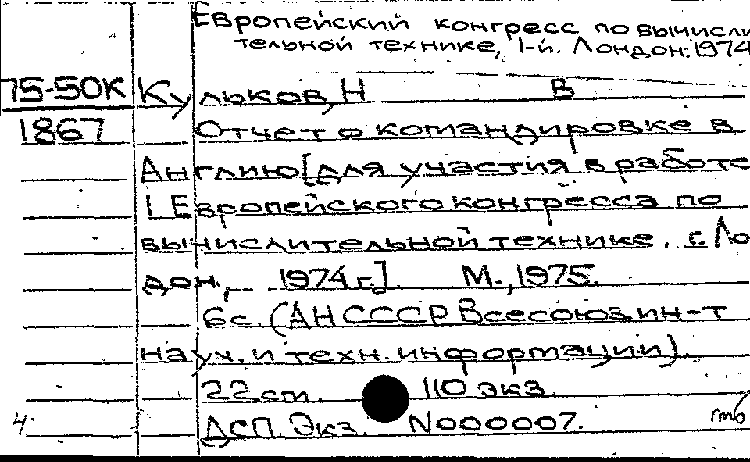 Европейский конгресс по вычисли
тельной технике, 1-й. Лондон. 1974
75-50К Кульков, Н В
1867 Отчет о командировке в
Англию [для участия в работе
I Европейского конгресса по
вычислительной технике. г. Ло
дон, 1974 г.] М., 1975.
6 с. (АН СССР Всесоюз ин-т
науч. и техн. информации).
22 см. 110 экз.
4 ДСП. Экз. N000007.